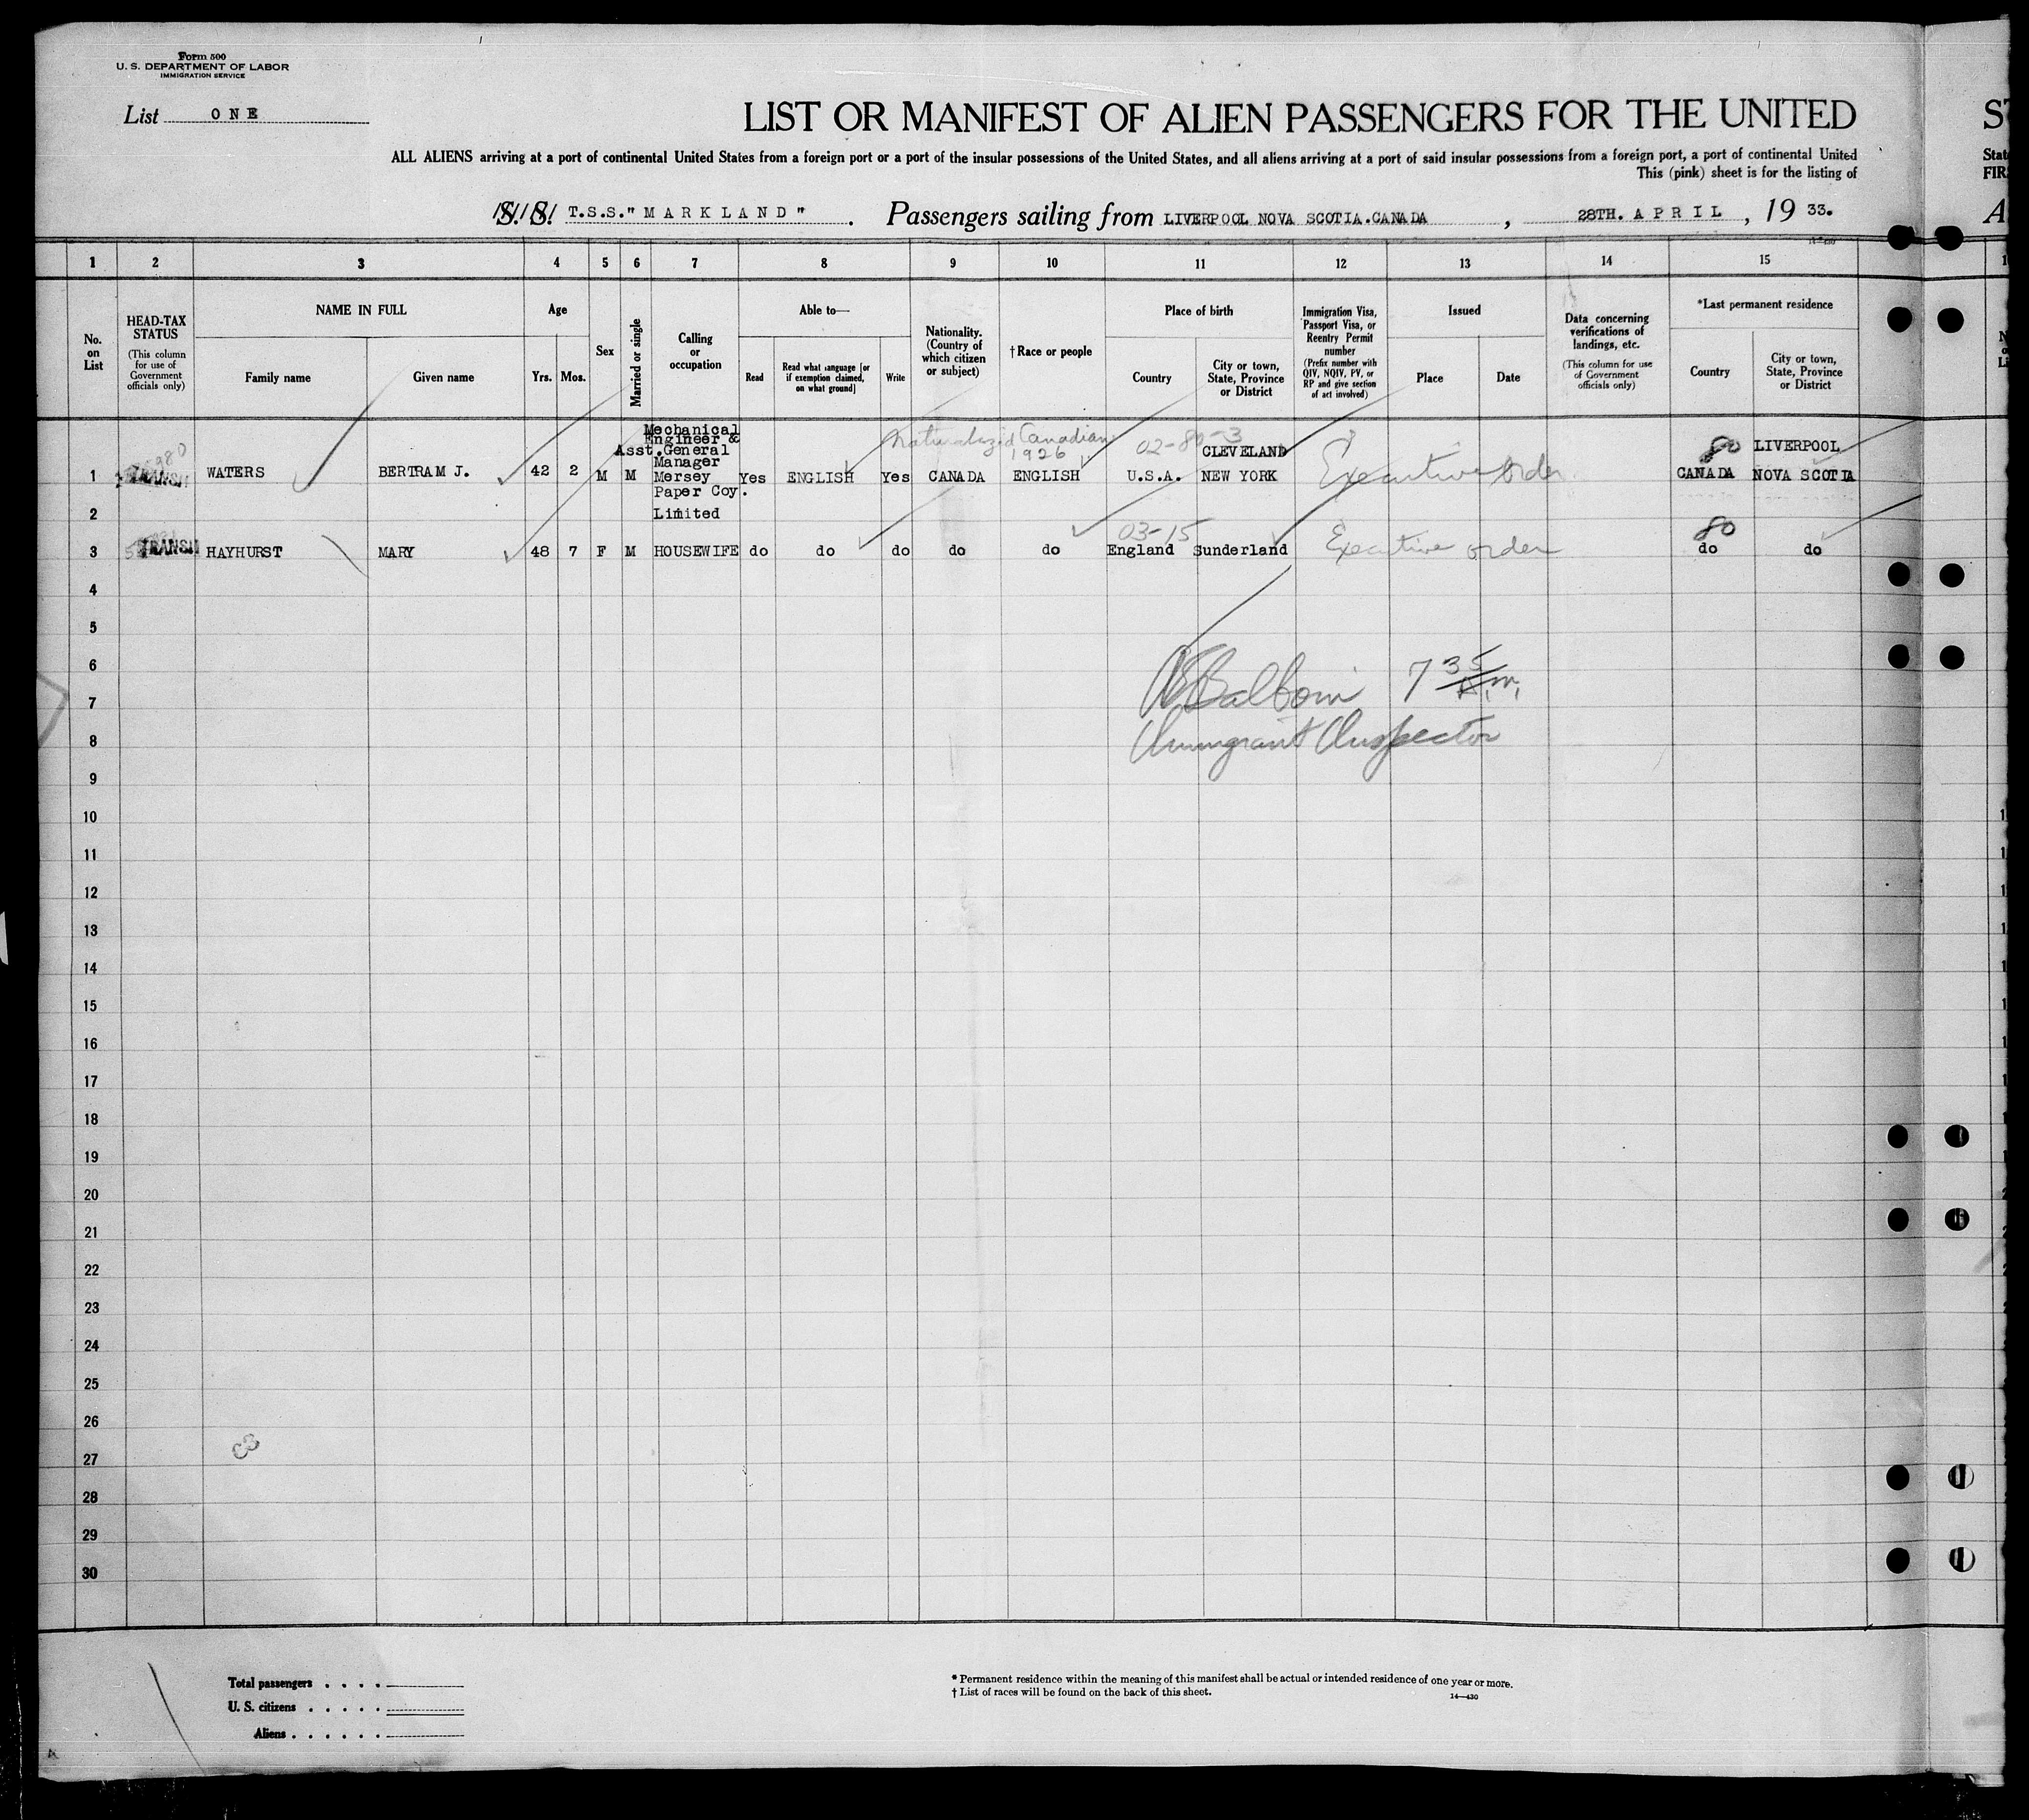 Form 500
U. S. DEPARTMENT OF LABOR
IMMIGRATION SERVICE
List ONE
LIST OR MANIFEST OF ALIEN PASSENGERS FOR THE UNITED
ST
ALL ALIENS arriving at a port of continental United States from a foreign port or a port of the insular possessions of the United States, and all aliens arriving at a port of said insular possessions from a foreign port, a port of continental United
Stat
This (pink) sheet is for the listing of
FIR
S. S. T.S.S." MARKLAND " . Passengers sailing from LIVERPOOL NOVA SCOTIA.CANADA , 28TH. APRIL , 19 33.
A
14—430
1 2 3 4 5 6 7 8 9 10 11 12 13 14 15
No. on List
HEAD-TAX STATUS
(This column for use of Government officials only)
NAME IN FULL
Family name
Given name
Age
Yrs.
Mos.
Sex
Married or single
Calling or occupation
Able to—
Read
Read what language [or if exemption claimed, on what ground]
Write
Nationality. (Country of which citizen or subject)
†Race or people
Place of birth
Country
City or town, State, Province or District
Immigration Visa, Passport Visa, or Reentry Permit number
(Prefix number with QIV, NQIV, PV, or RP and give section of act involved)
Issued
Place
Date
Data concerning verifications of landings, etc.
(This column for use of Government officials only)
*Last permanent residence
Country
City or town, State, Province or District
1 TRANSIT WATERS BERTRAM J. 42 2 M M Mechanical Engineer & Asst.General Manager Mersey Paper Coy. Limited Yes ENGLISH Yes CANADA ENGLISH U.S.A. CLEVELAND NEW YORK Executive order 80 CANADA LIVERPOOL NOVA SCOTIA
naturalized Canadian 1926
02-80-3
2
3 TRANSIT HAYHURST MARY 48 7 F M HOUSEWIFE do do do do do England Sunderland Executive order 80 do do
03-15
4
5
6
7
8
9
10
11
12
13
14
15
16
17
18
19
20
21
22
23
24
25
26
27
28
29
30
7 35 A.m.
Immigrant Inspector
Total passengers . . . .
U. S. citizens . . . . .
Aliens . . . . . .
* Permanent residence within the meaning of this manifest shall be actual or intended residence of one year or more.
† List of races will be found on the back of this sheet.
14—430